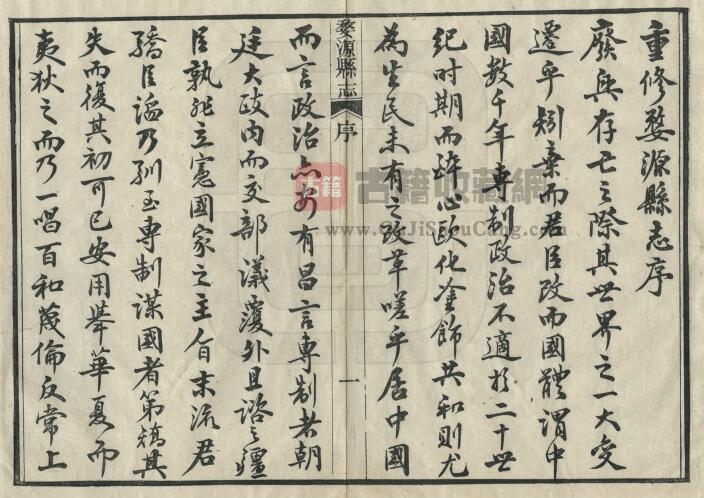 重修婺源縣志序
廢興存亡之際其世界之一大變
遷乎矧棄而君臣改而國體謂中
國數千年專制政治不適於二十世
紀时期而醉心歐化塗飾共和則尤
為生民未有之改革嗟乎居中國
婺源縣志
序
一
而言政治亦安有昌言專制者朝
廷大政內而交部議覆外且諮之疆
臣孰非立憲國家之主旨末流君
驕臣諂乃馴至專制謀國者第矯其
失而復其初可已安用舉華夏而
夷狄之而乃一唱百和蔑倫反常上
古籍
古籍收藏網
www.GuJiShouCang.com